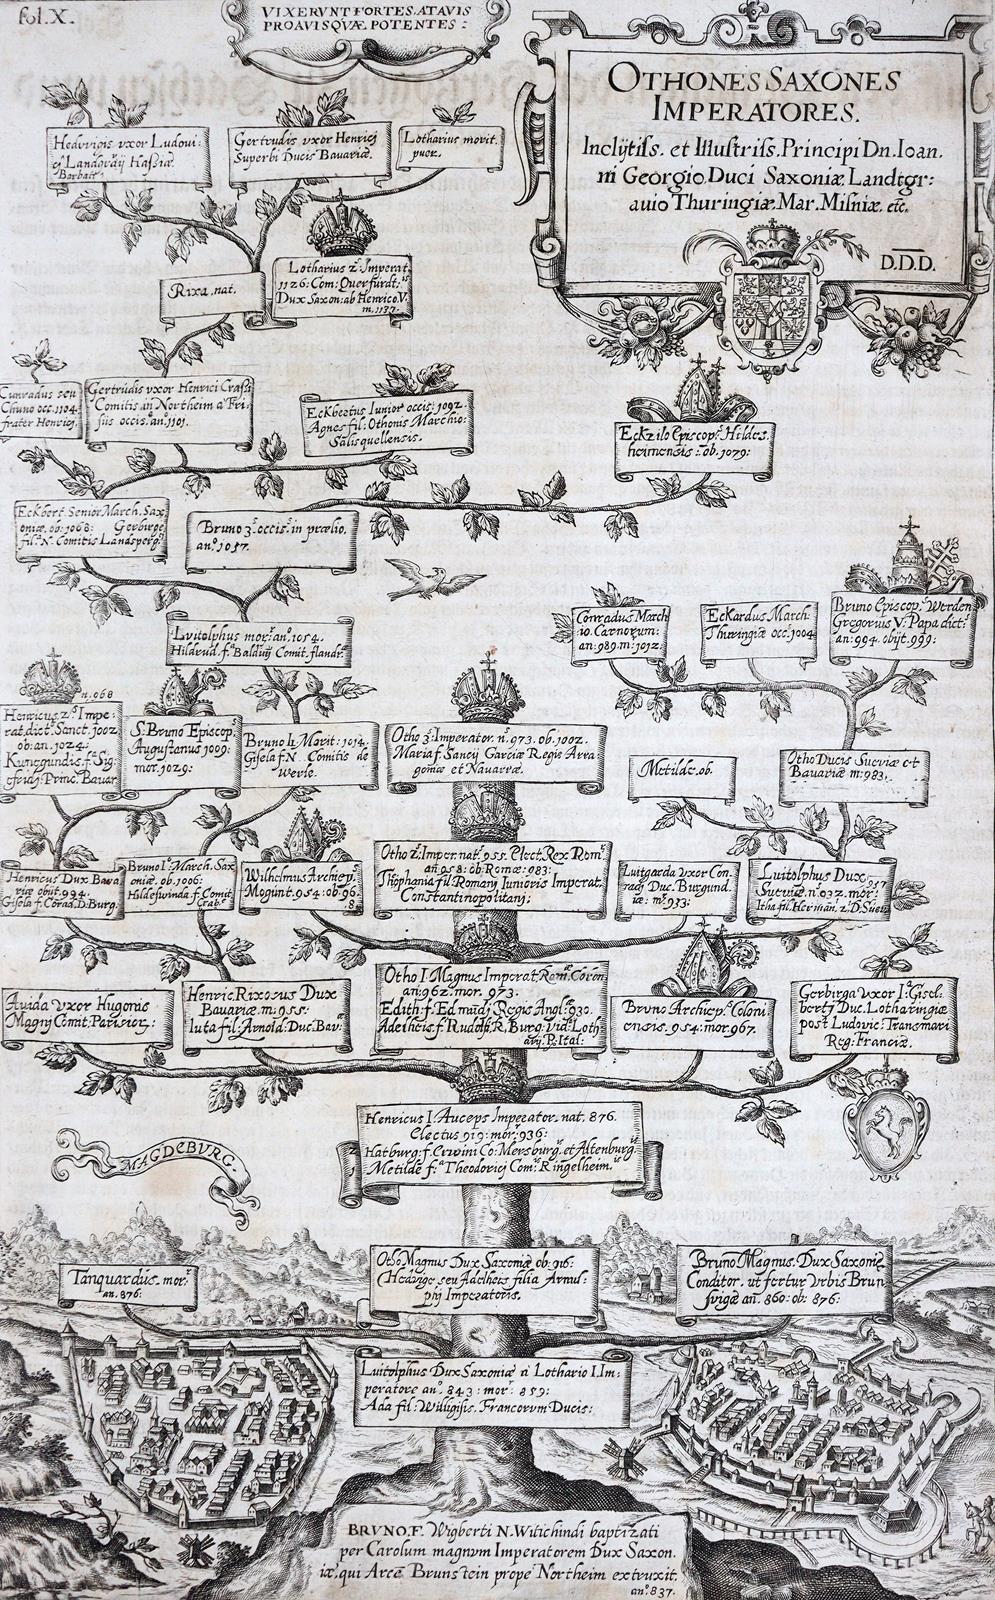 fol.X.
VIXERVNT FORTES ATAVIS
PROAVISQVÆ POTENTES :
OTHONES SAXONES
IMPERATORES.
Inclÿtiſs. et Illuſtriſs. Principi Dn. Ioan.
ni Georgio Duci Saxoniæ Landtgr:
auio Thuringiæ. Mar. Miſniæ. etc.
D.D.D.
Hedvvigis vxor Ludoui:
ci Landgrāij Haſsiæ
Barbati.
Gertrudis vxor Henricj
Superbi Ducis Bauariæ.
Lotharius morit.
puer.
Rixa. nat.
Lotharius 2. Imperat.
1126. Com: Querfurdt:
Dux Saxon: ab Henrico V.
m. 1137.
Cunradus seu
Chuno occ. 1104.
frater Henricj.
Gertrudis vxor Henrici Craſsi
Comitis in Northeim a Fri-
ſiis occis. an. 1101.
Eckbertus Iunior occis: 1092.
Agnes fil: Othonis Marchio:
Salisquellensis.
Eckzilo Epiſcop. Hildes
heimensis : ob. 1079:
Eckbert Senior March. Sax
oniæ. ob. 1068: Gerbirge
fil. N. Comitis Landsperg.
Bruno 3. occis. in prœlio.
an. 1057.
Lvitolphus mor. an. 1054.
Hildeud. f. Balduij Comit. flandr.
Conradus March
io. Carnorum:
an: 989. m: 1012.
Eckardus March:
Thuringiæ occ. 1004
Bruno Epiſcop. Werden
Gregorius V. Papa dict:
an: 994. obijt. 999:
n. 968
Henricus 2. Impe:
rat. dict. Sanct. 1002
ob: an. 1024.
Kunegundis f. Sig:
fridj Princ. Bauar
S. Bruno Epiſcop.
Auguſtanus 1009:
mor. 1029:
Bruno II. Morit: 1014.
Giſela f. N. Comitis de
Werle.
Otho 3. Imperator n. 973. ob. 1002.
Maria f. Sancij Garciæ Regis Arra
goniæ et Nauarræ.
Metilde. ob.
Otho Ducis Sueviæ et
Bavariæ m: 983.
Henricus Dux Bava
riæ obijt. 994.
Giſela f. Coras. D. Burg.
Bruno I. March. Sax
oniæ. ob. 1006:
Hildeſwinda f. Comit.
Crab.
Wilhelmus Archiep.
Mogunt. 954: ob. 96.
8
Otho 2. Imper. nat. 955. Elect. Rex Rom.
an. 958. ob. Romæ. 983:
Theophania fil. Romanj Iunioris Imperat.
Conſtantinopolitanj:
Luitgarda vxor Con-
radj Duc. Burgund.
iæ: m. 933:
Luitolphus Dux
Sueviæ n. 932. mor. 957
Itha fil. Herman. 2. D. Suev.
Avida vxor Hugonis
Magnj Comit. Pariſior:
Henric. Rixosus Dux
Bauariæ. m: 955:
Iuta fil: Arnold: Duc. Bav:
Otho I. Magnus Imperat. Rom. Coron.
an. 962. mor. 973.
Edith f. Edmūdj Regis Angl. 930.
Adelheis f. Rudolf. R. Burg: vid. Loth
arij. P. Ital:
Bruno Archiep. Coloni
ensis. 954: mor. 967.
Gerbirga vxor I. Giſel-
bertj Duc. Lotharingiæ
post Ludovic: Transmari
Reg: Franciæ.
Henricus I. Auceps Imperator. nat. 876.
Electus 919: mor. 936:
2 Hatburg: f. Erwini Co: Mersburg. et Altenburg.
1 Metilde f. Theodoricj Com. Ringelheim.
MAGDEBVRG.
Tanquardus. mor.
an. 876:
Otho Magnus Dux Saxoniæ ob: 916:
Hedwige seu Adelheis filia Arnul-
phj Imperatoris.
Bruno Magnus. Dux Saxoniæ
Conditor. ut fertur Vrbis Brun
ſvigæ an. 860: ob: 876:
Luitolphus Dux Saxoniæ a Lothario I. Im-
peratore an. 843: mor: 859:
Ada fil: Wiligiſis. Francorvm Ducis:
BRVNO. F. Wigberti N. Witichindi baptizati
per Carolum magnvm Imperatorem Dux Saxon.
iæ. qui Arcē Brunstein prope Northeim extruxit.
an. 837.